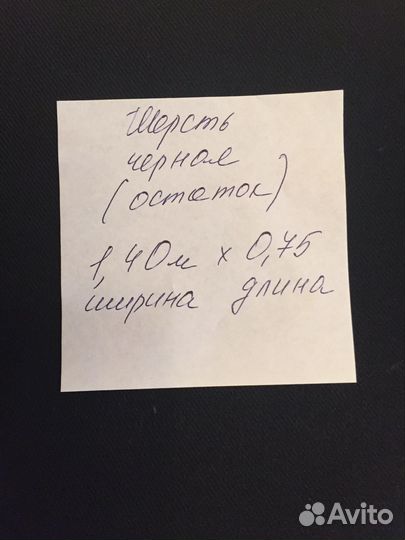 Шерсть
черная
(остаток)
1,40м х 0,75
ширина длина
Avito